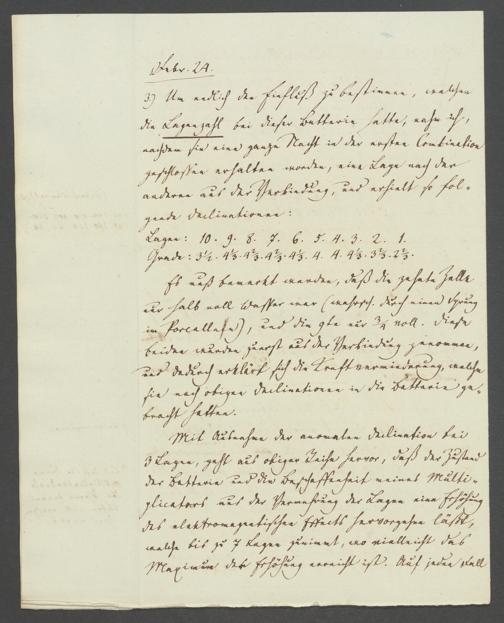 Febr. 24.
3) Um endlich den Einfluß zu bestimmen, welchen
die Lagenzahl bei dieser Batterie hatte, nahm ich,
nachdem sie eine ganze Nacht in der ersten Combination
geschlossen erhalten worden, eine Lage nach der
anderen aus der Verbindung, und erhielt so fol-
gende Declinationen:
Lagen: 10. 9. 8. 7. 6. 5. 4. 3. 2. 1.
Grade: 3½. 4. 4. 4⅓. 2⅓.
Es muß bemerkt werden, daß die zehnte Zelle
nur halb voll Wasser war (wahrsch. durch einen Sprung
im Porcellan), und die 9te nur ¾ voll. Diese
beiden wurden zuerst aus der Verbindung genommen,
und dadurch erklärt sich die Kraftverminderung, welche
sie nach obigen Declinationen in die Batterie ge-
bracht hatten.
Mit Ausnahme der anomalen Declination bei
3 Lagen, geht aus obiger Reihe hervor, daß der Zustand
der Batterie und die Beschaffenheit meines Multi-
plicators aus der Vermehrung der Lagen eine Erhöhung
des elektromagnetischen Effects hervorgehen läßt,
welche bis zu 7 Lagen zunimmt, wo vielleicht das
Maximum der Erhöhung erreicht ist. Auf jeden Fall